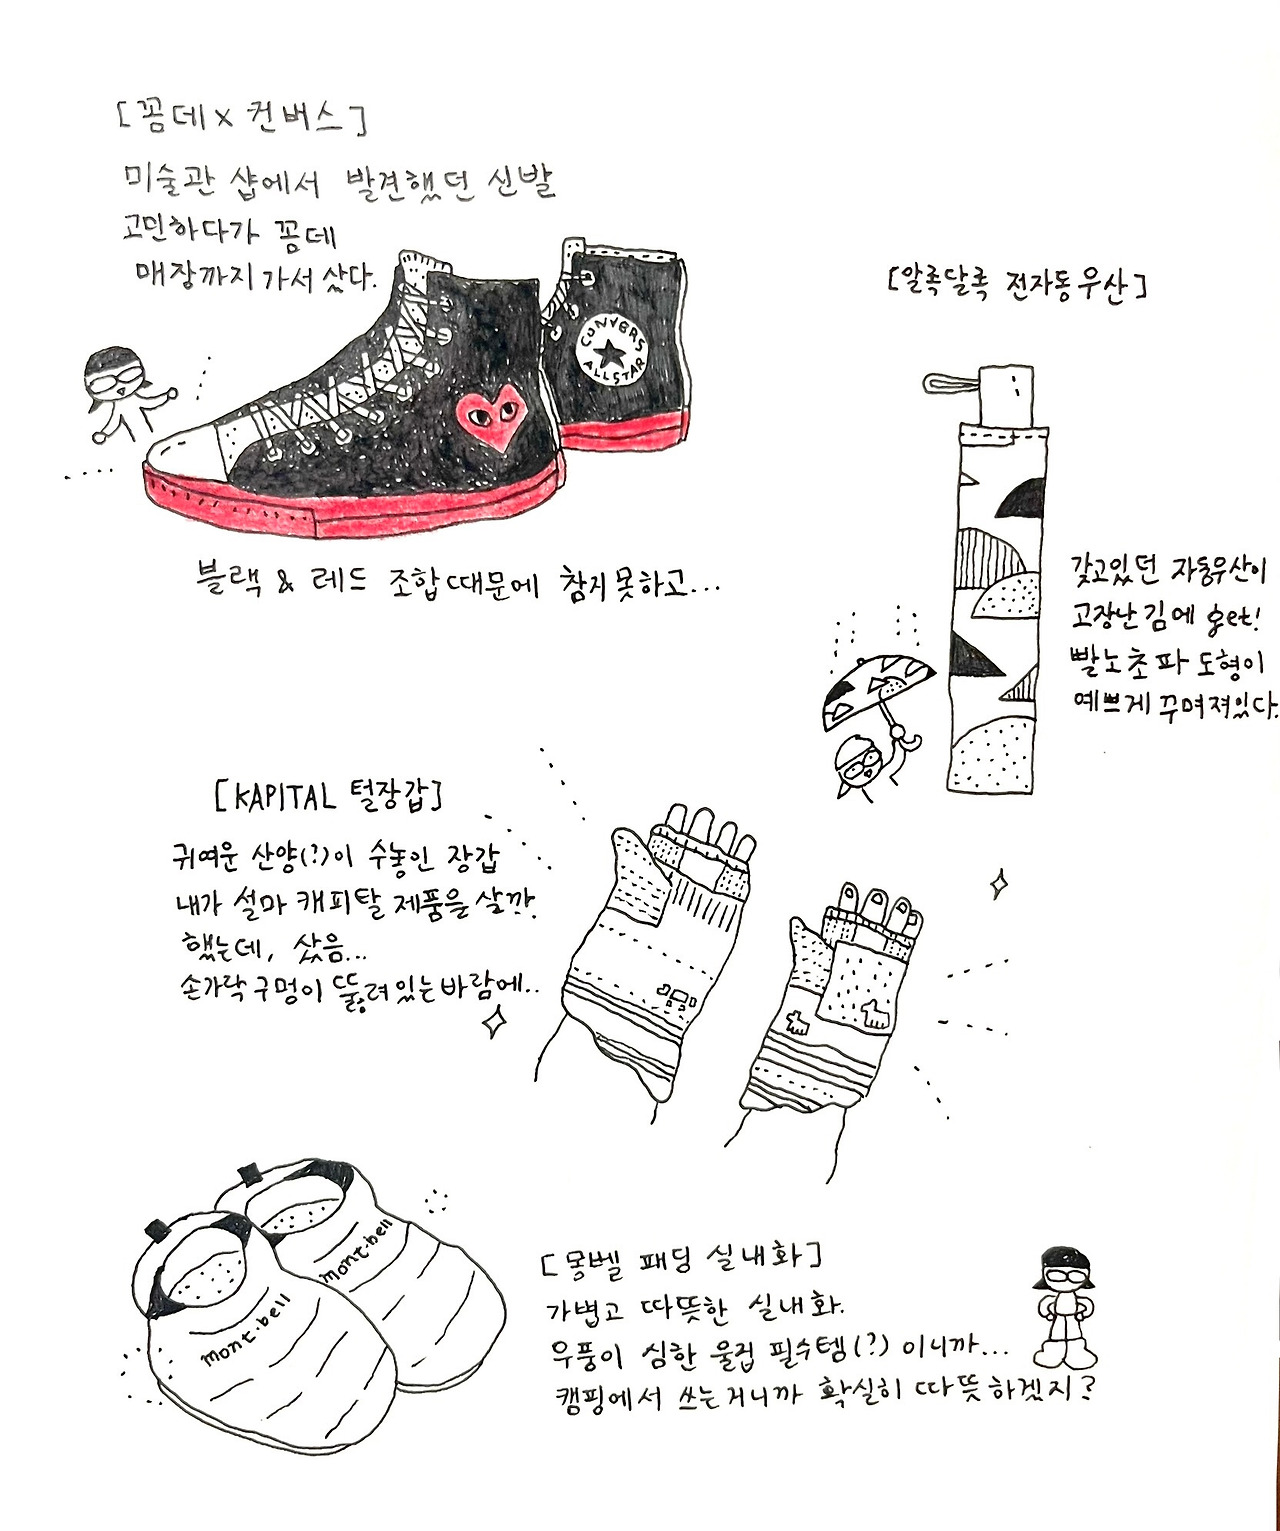 [꼼데 x 컨버스]
미술관 샵에서 발견했던 신발
고민하다가 꼼데
매장까지 가서 샀다.
CONVERS
ALLSTAR
블랙 & 레드 조합 때문에 참지 못하고...
[알록달록 전자동우산]
갖고있던 자동우산이
고장난 김에 get!
빨노초파 도형이
예쁘게 꾸며져있다.
[KAPITAL 털장갑]
귀여운 산양(?)이 수놓인 장갑
내가 설마 캐피탈 제품을 살까.
했는데, 샀음...
손가락 구멍이 뚫려있는 바람에..
mont·bell
mont·bell
[몽벨 패딩 실내화]
가볍고 따뜻한 실내화.
우풍이 심한 울집 필수템(?) 이니까...
캠핑에서 쓰는거니까 확실히 따뜻하겠지?